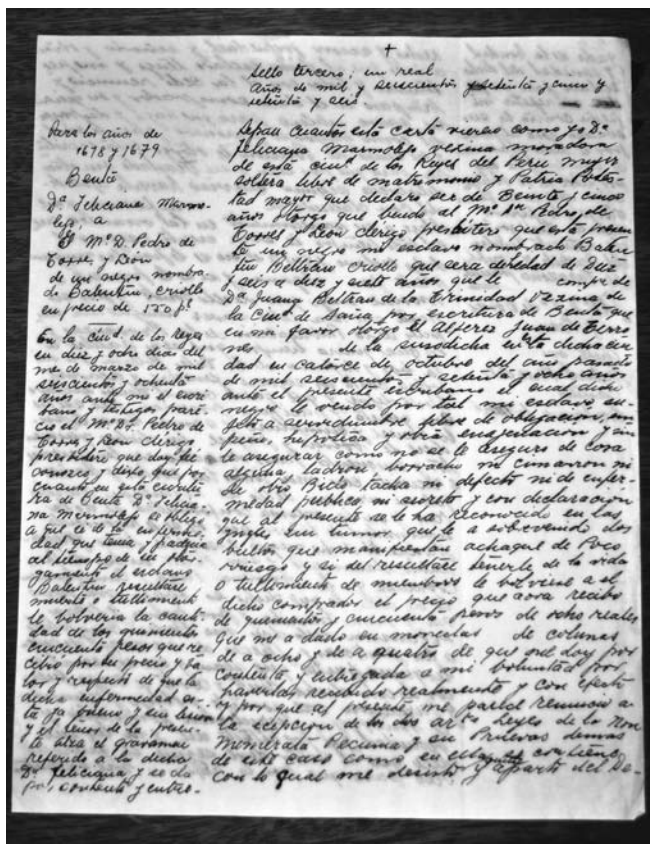 +
Sello tercero; un real
Años de mil y seiscientos y setenta y cinco y
setenta y seis
Para los años de
1678 y 1679
Benta
Dª Feliciana Marmo-
lejo, a
El Mº D. Pedro de
Torres, y Leon
de un negro nombra-
do Balentin, criollo
en precio de 550 pˢ.
En la ciuᵈ. de los Reyes
en diez y ocho dias del
mes de marzo de mil
seiscientos y ochenta
años ante mi el escri-
bano y testigos pare-
cio el Mº Dⁿ. Pedro de
Torres y Leon clerigo,
presbitero que doy fee
conozco y dixo, que por
cuanto en esta escritu-
ra de Benta Dª Felicia-
na Marmolejo se obligo
a que si de la enferme-
dad que tenia y padecia
al tiempo de su otor-
gamiento el esclavo
Balentin resultare
muerte o tullimiento
le bolveria la canti-
dad de los quinientos
cincuenta pesos que re-
cibio por su precio y ba-
lor y respecto de que la
dicha enfermedad es-
ta ya bueno y sin lesion
y el tenor de la presen-
te alza el gravamen
referido a la dicha
Dª Feliciana, y se da
por contento y entre-
Sepan cuantos esta carta vieren como yo Dª
Feliciana Marmolejo vezina moradora
de esta ciuᵈ de los Reyes del Peru muger
soltera libre de matrimonio y Patria Potes-
tad mayor que declaro ser de Beinte y cinco
años otorgo que bendo al Mº Dⁿ Pedro de
Torres y Leon clerigo presbitero que esta presen-
te un negro mi esclavo nombrado Balen-
tin Beltran criollo que sera de hedad de Diez
y seis a diez y siete años que le compre de
Dª Juana Beltran de la Trinidad vezina de
la Ciuᵈ de Saña, por escritura de Benta que
en mi favor otorgo el Alferez Juan de
de la susodicha en esta dicha ciu-
dad en catorce de octubre del año pasado
de mil seiscientos y setenta y ocho años
ante el presente escribano el cual dicho
negro le vendo por tal mi esclavo su-
jeto a servidumbre libre de obligacion, em-
peño, hipoteca y otra enajenacion y sin
le asegurar como no se le aseguro de cosa
alguna ladron borracho ni cimarron ni
de otro Bicio tacha ni defecto ni de enfer-
medad publica, ni secreta y con declaracion
que al presente se le ha reconocido en las
yngles un humor que le a sobrevenido dos
bultos que manifiestan achaque de Poco
riesgo y si del resultare perderle de la vida
o tullimiento de miembros le bolviere a el
dicho comprador el precio que aora recibo
de quinientos y cincuenta pesos de ocho reales
que me a dado en monedas de colunas
de a ocho y de a quatro de que me doy por
contenta, y entregada a mi boluntad por
haverlos recibido realmente y con efecto
y por que al presente no parece renuncio a
la ecepcion de los dos años Leyes de la non
Numerata Pecunia y su Prueva demas
de este caso como en ellas se contiene
con lo qual me desisto, y aparto del De-